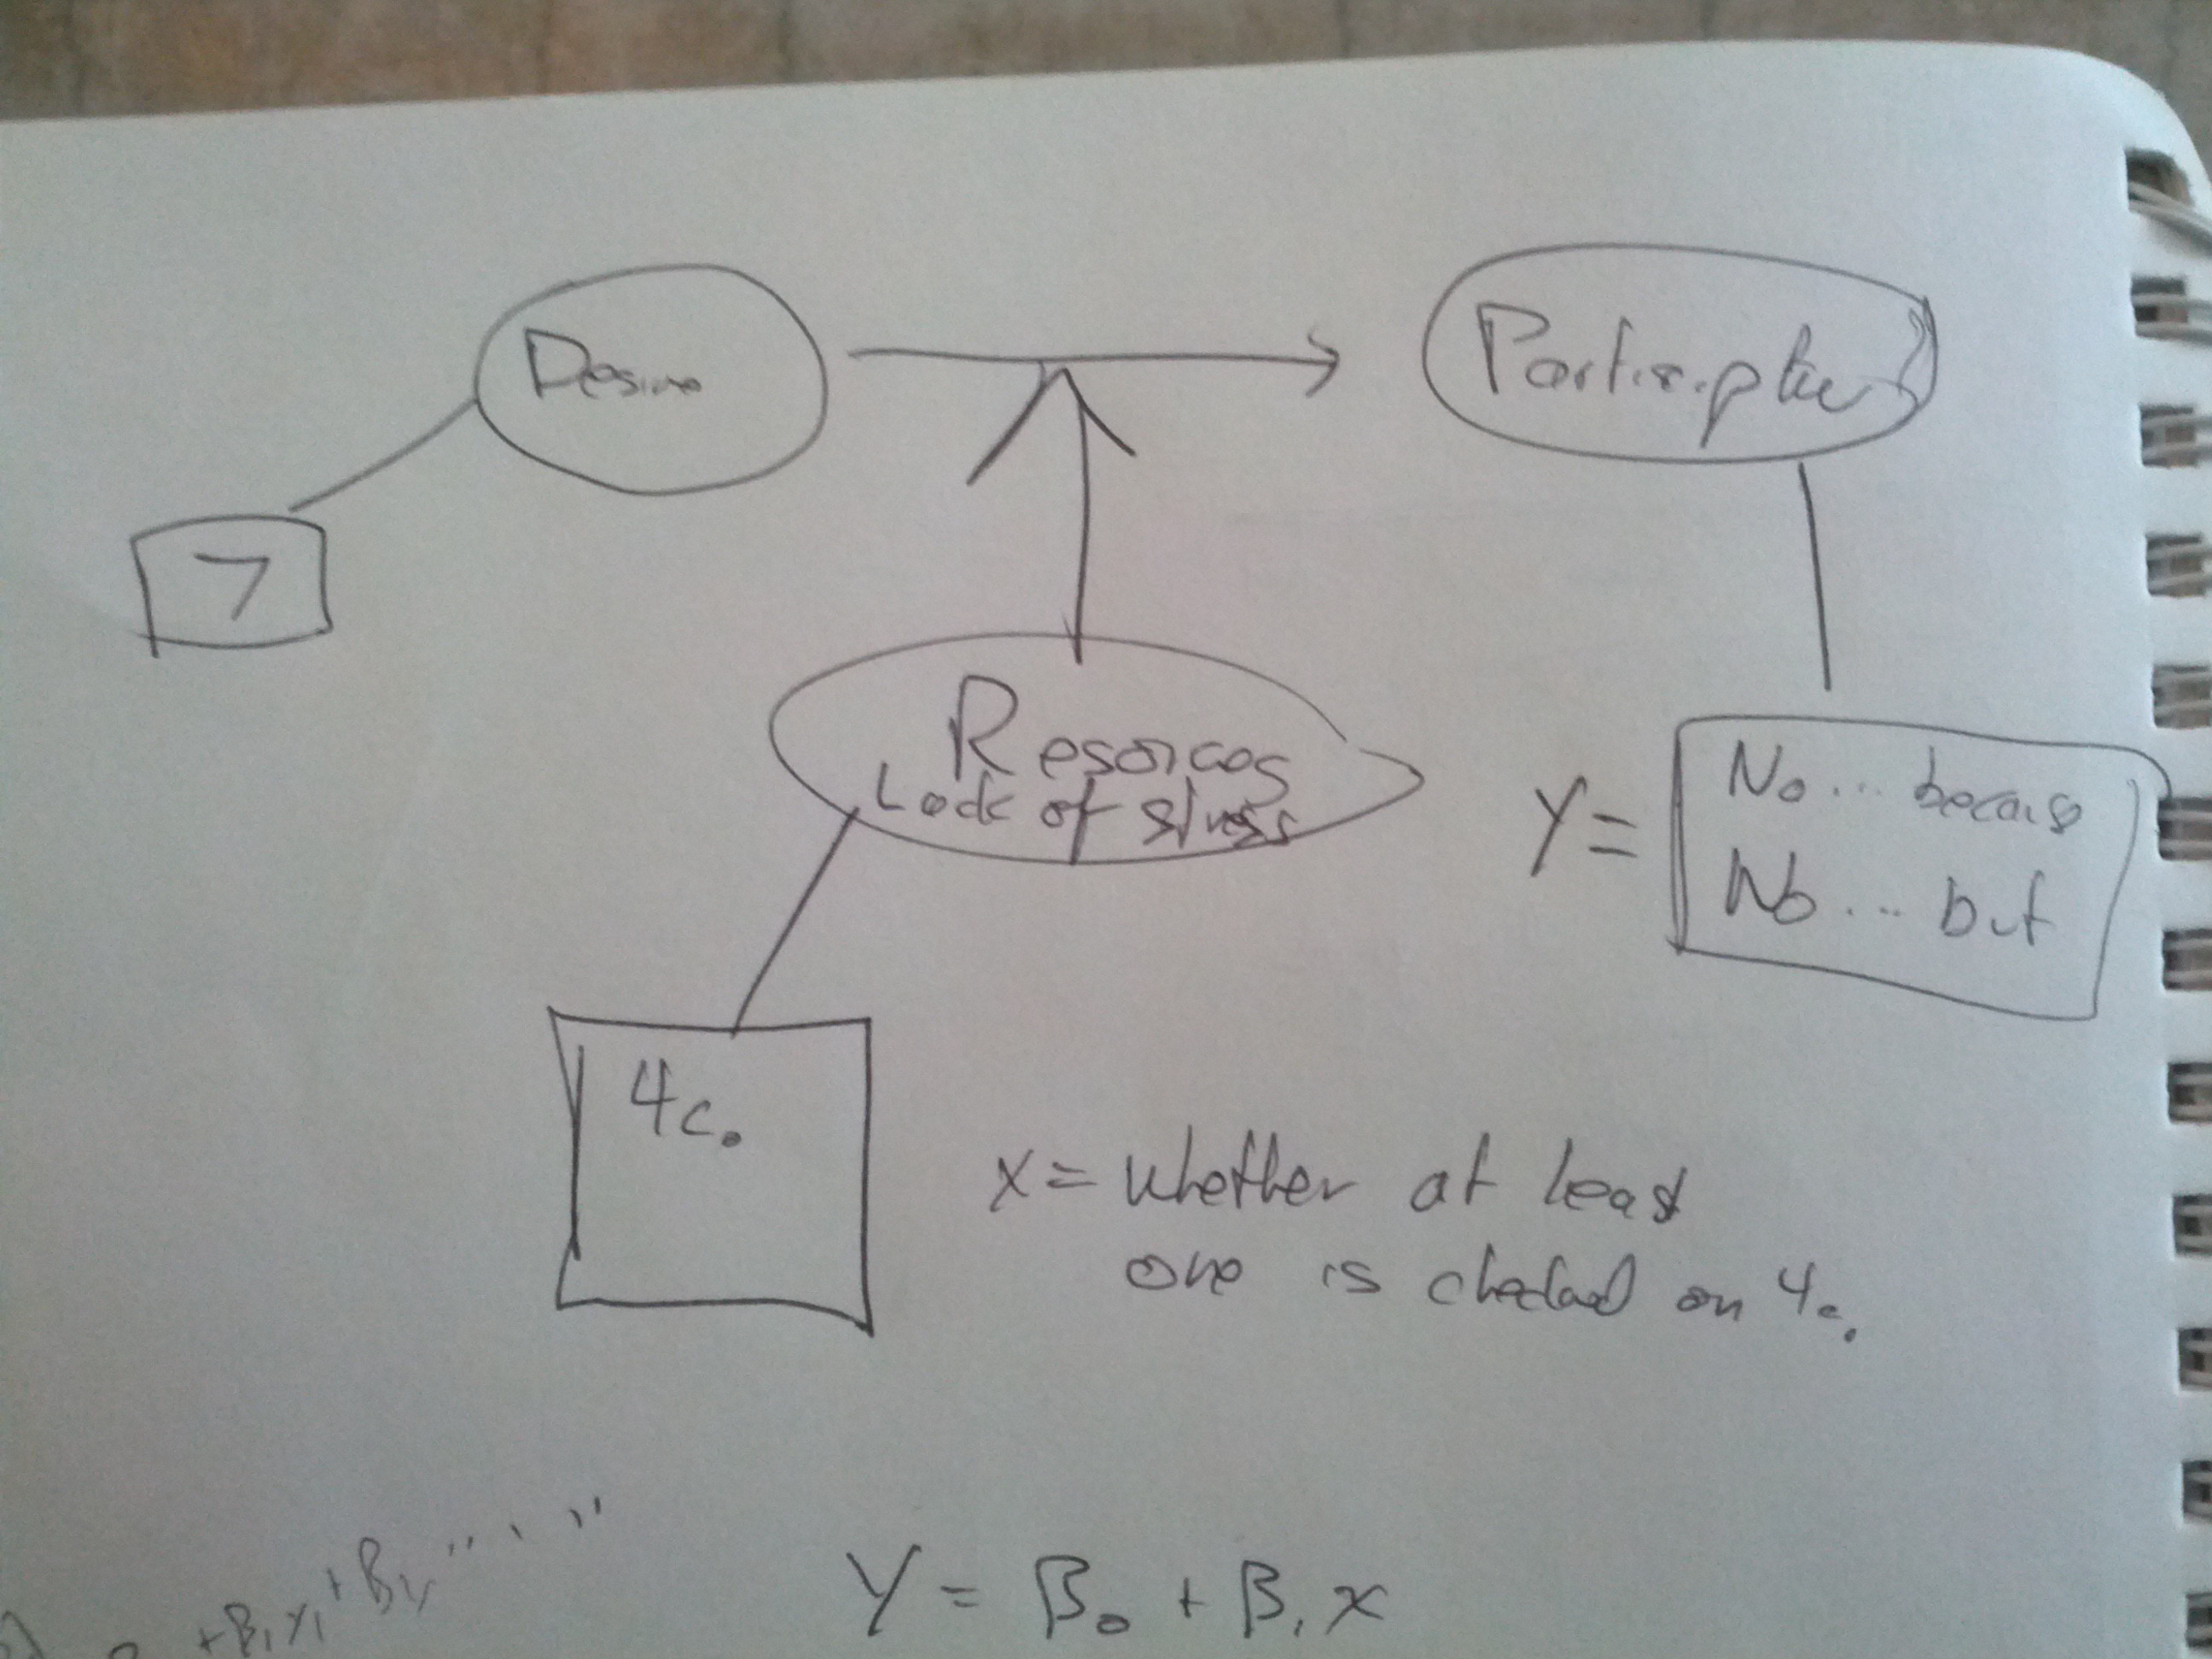 Desire
Participation
7
Resorces
Lack of stress
Y =
No... because
No... but
4c.
x = whether at least
one is checked on 4c.
+ B₁x₁ + B
Y = β₀ + β₁x